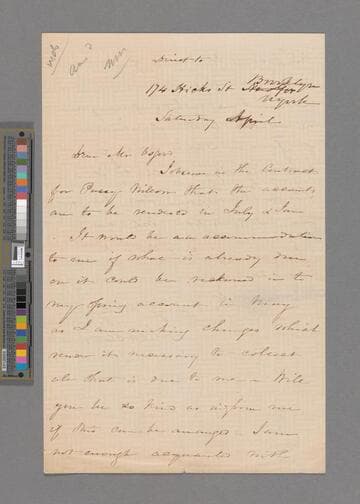 Direct to
174 Hicks St Brooklyn
N york
Saturday April
Dear Mr Osgood
I observe in the Contract
for Percy Wilson that the accounts
are to be rendered in July & Jan
It would be an accommodation
to me if what is already due
on it could be reckoned in to
my Spring account in May
as I am making changes which
render it necessary to collect
all that is due to me - Will
you be so kind as inform me
if this can be arranged I am
not enough acquainted with